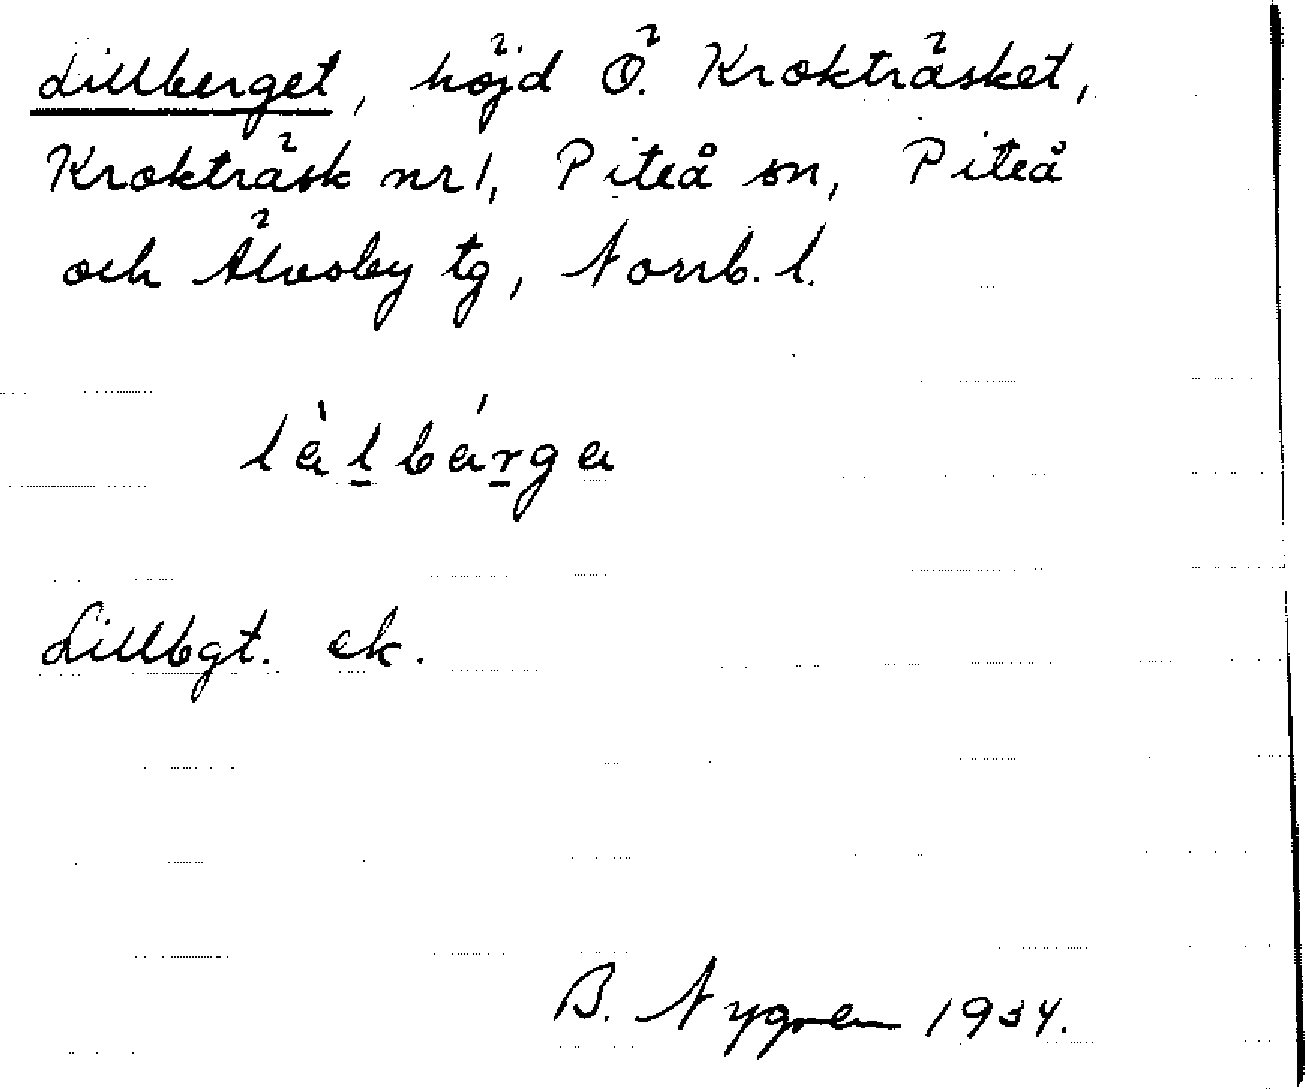 Lillberget, höjd Ö. Krokträsket,
Krokträsk nr 1, Piteå sn, Piteå
och Älvsby tg, Norrb. l.
làl̠bárg̠a
Lillbgt. ek.
B. Nygren 1934.